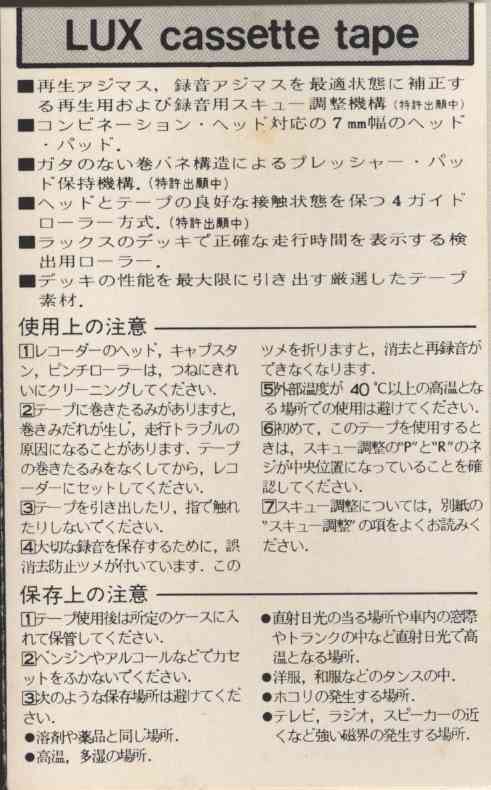 LUX cassette tape
■再生アジマス，録音アジマスを最適状態に補正す
る再生用および録音用スキュー調整機構（特許出願中）
■コンビネーション・ヘッド対応の7mm幅のヘッド
・パッド．
■ガタのない巻バネ構造によるプレッシャー・パッ
ド保持機構．（特許出願中）
■ヘッドとテープの良好な接触状態を保つ4ガイド
ローラー方式．（特許出願中）
■ラックスのデッキで正確な走行時間を表示する検
出用ローラー．
■デッキの性能を最大限に引き出す厳選したテープ
素材．
使用上の注意
1レコーダーのヘッド，キャプスタ
ン，ピンチローラーは，つねにきれ
いにクリーニングしてください．
2テープに巻きたるみがありますと，
巻きみだれが生じ，走行トラブルの
原因になることがあります．テープ
の巻きたるみをなくしてから，レコ
ーダーにセットしてください．
3テープを引き出したり，指で触れ
たりしないでください．
4大切な録音を保存するために，誤
消去防止ツメが付いています．この
ツメを折りますと，消去と再録音が
できなくなります．
5外部温度が 40℃以上の高温とな
る場所での使用は避けてください．
6初めて，このテープを使用すると
きは，スキュー調整の"P"と"R"のネ
ジが中央位置になっていることを確
認してください．
7スキュー調整については，別紙の
"スキュー調整"の項をよくお読みく
ださい．
保存上の注意
1テープ使用後は所定のケースに入
れて保管してください．
2ベンジンやアルコールなどでカセ
ットをふかないでください．
3次のような保存場所は避けてくだ
さい．
●溶剤や薬品と同じ場所．
●高温，多湿の場所．
●直射日光の当る場所や車内の窓際
やトランクの中など直射日光で高
温となる場所．
●洋服，和服などのタンスの中．
●ホコリの発生する場所．
●テレビ，ラジオ，スピーカーの近
くなど強い磁界の発生する場所．